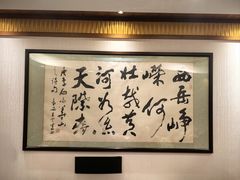 西岳峥
嵘何
壮哉黄
河如丝
天际来